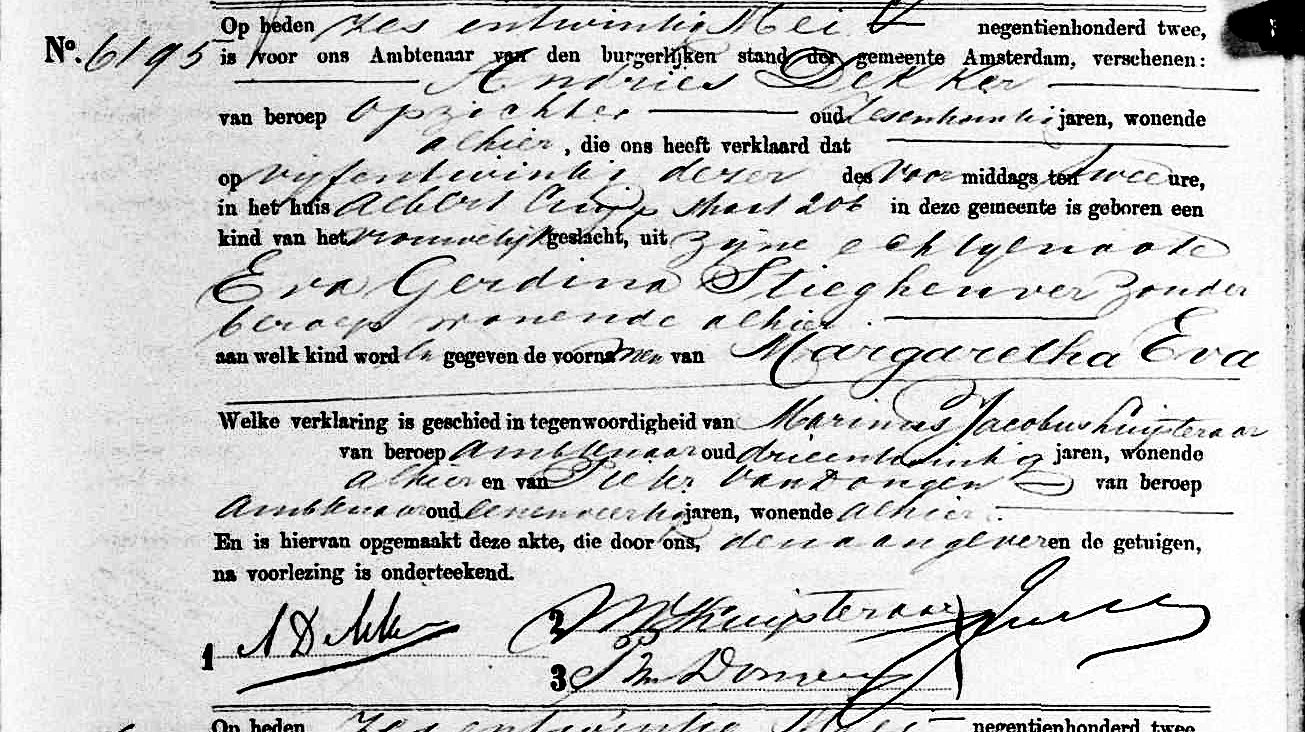 Op heden zes entwintig Mei negentienhonderd twee,
No. 6195 is voor ons Ambtenaar van den burgerlijken stand der gemeente Amsterdam, verschenen:
Andries Dekker
van beroep opzichter oud zesentwintig jaren, wonende
alhier, die ons heeft verklaard dat
op vijfentwintig dezer des voor middags ten twee ure,
in het huis Albert Cuijp straat 206 in deze gemeente is geboren een
kind van het vrouwelijk geslacht, uit zijne echtgenoote
Eva Gerdina Stieghenver zonder
beroep wonende alhier.
aan welk kind word en gegeven de voornamen van Margaretha Eva
Welke verklaring is geschied in tegenwoordigheid van Marinus Jacobus Kuijsteraar
van beroep ambtenaar oud drieentwintig jaren, wonende
alhier en van Pieter van Dongen van beroep
Ambtenaar oud zevenveertig jaren, wonende alhier.
En is hiervan opgemaakt deze akte, die door ons, den aangever en de getuigen,
na voorlezing is onderteekend.
1 A Dekker 2 MJ Kuijsteraar
3 P van Dongen
Op heden zes entwintig Mei negentienhonderd twee,